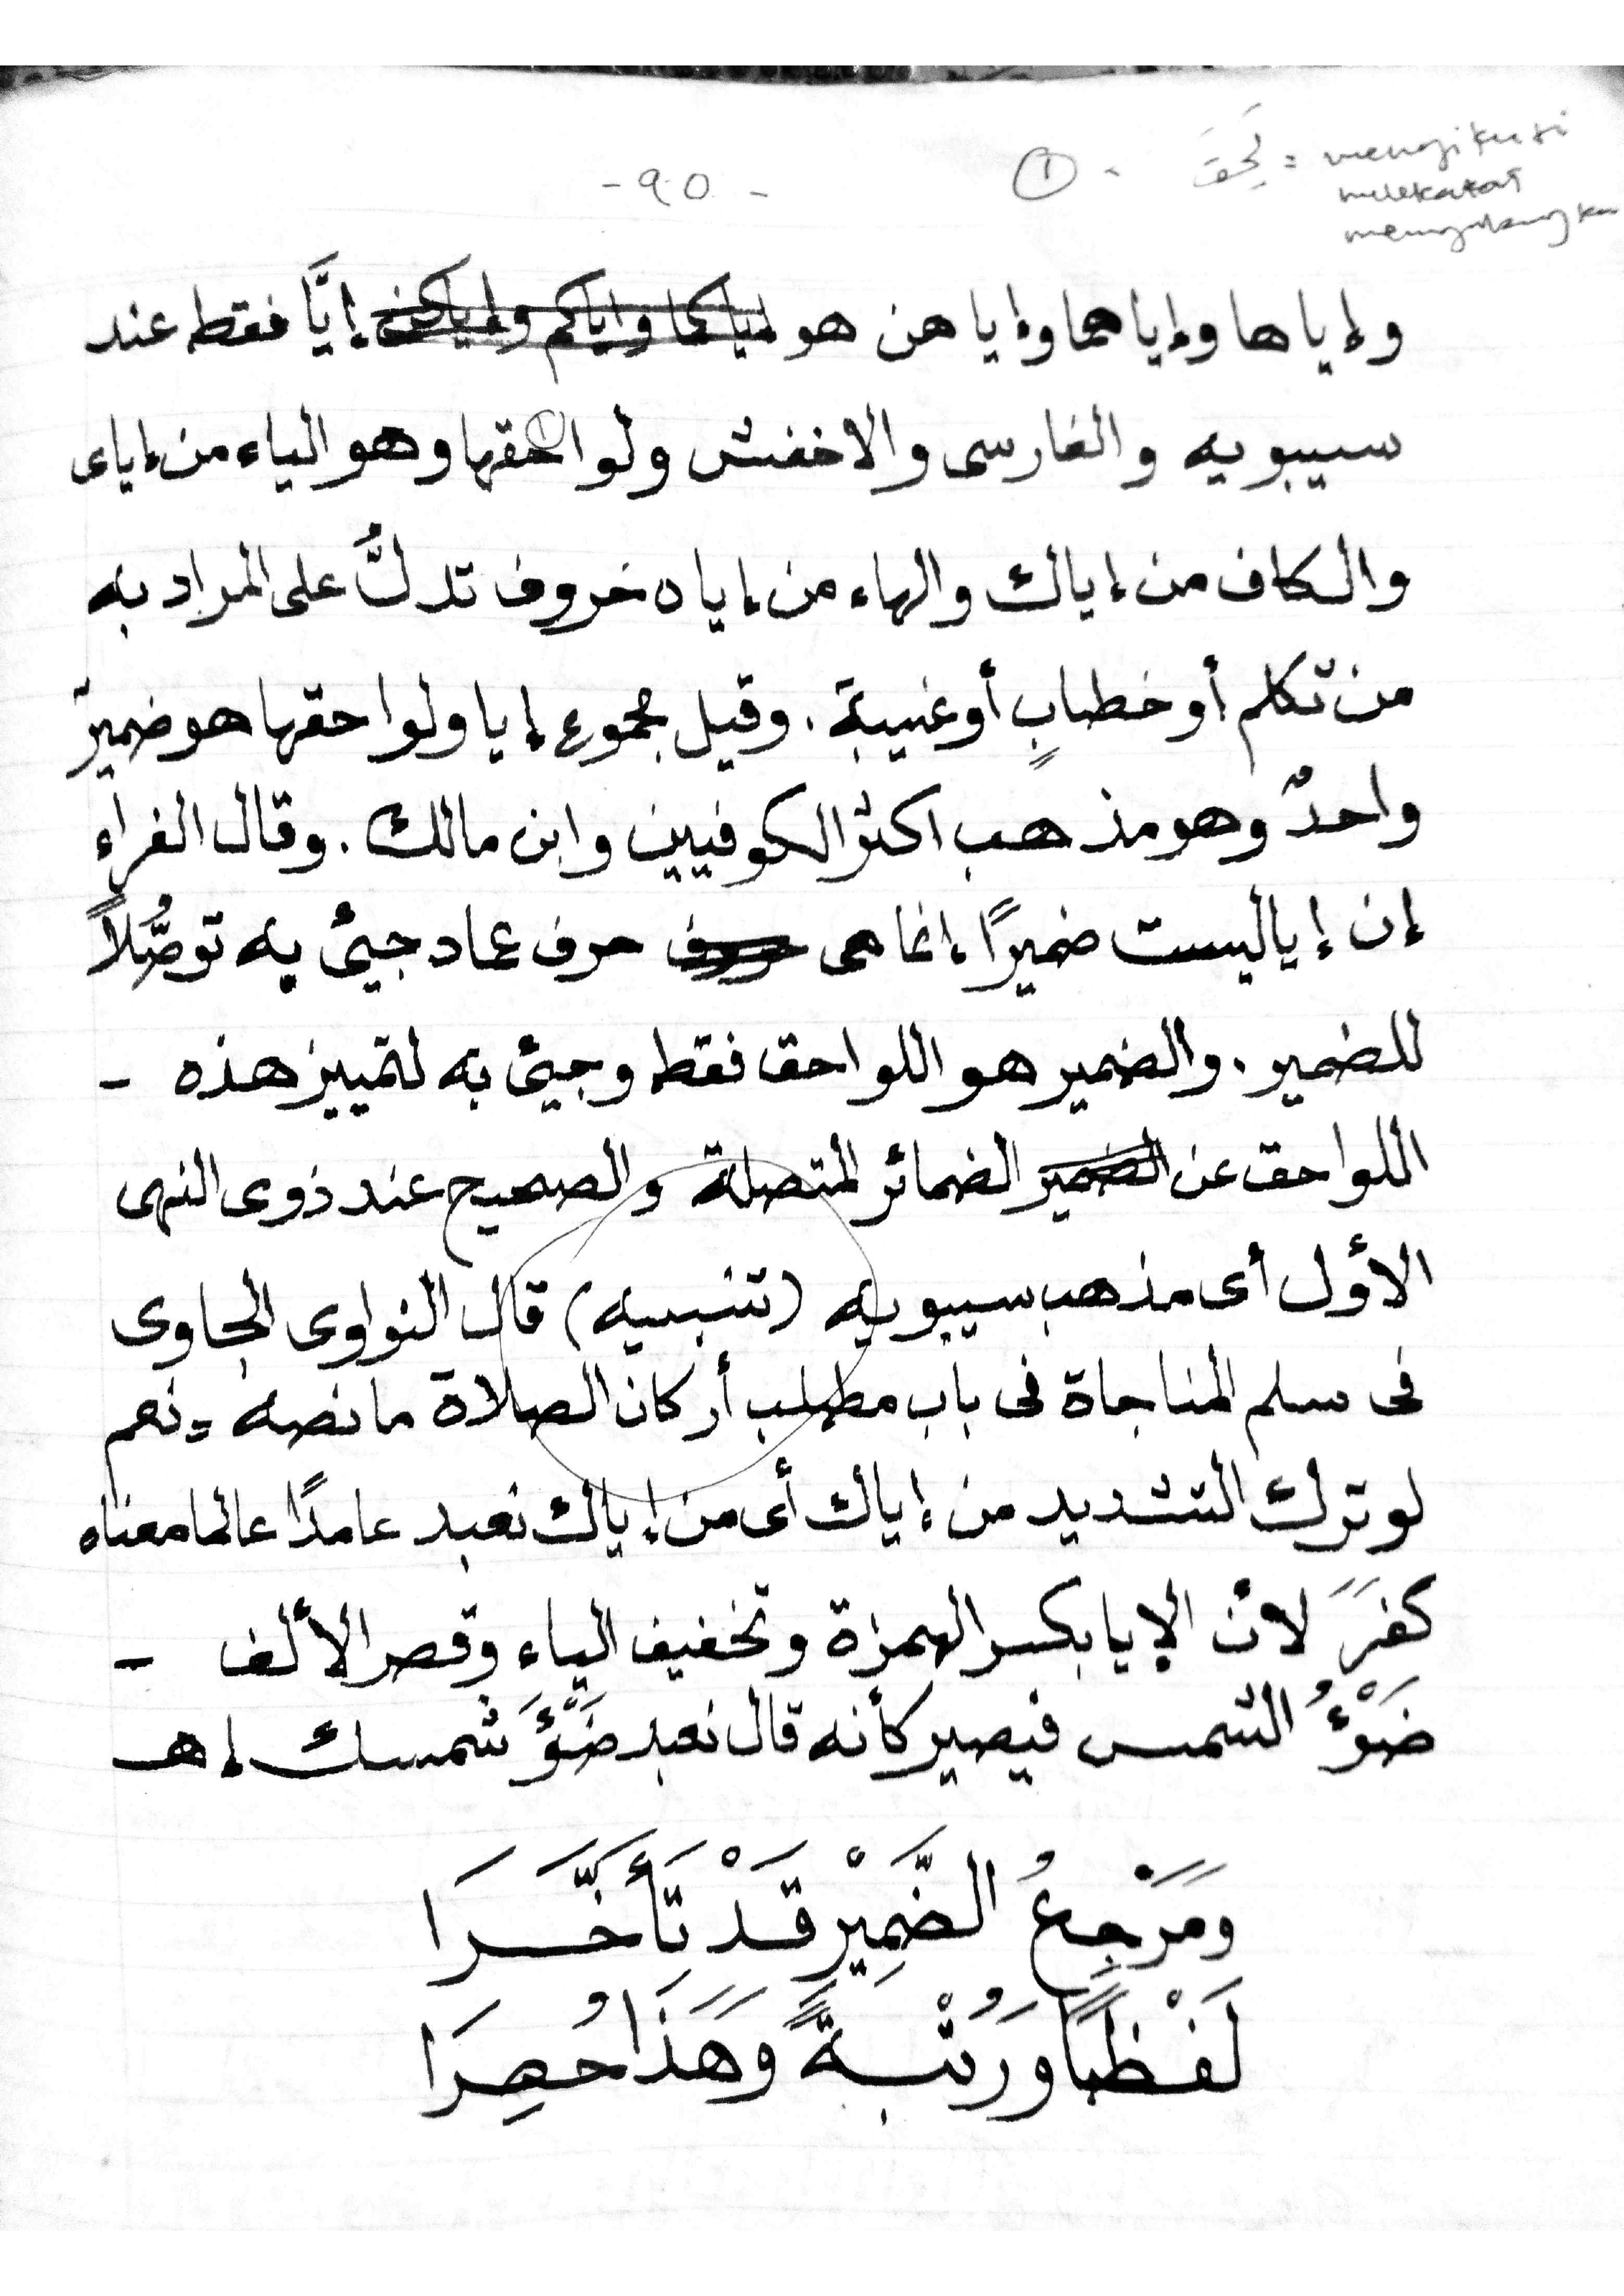 - ٩٥ -
① - لَحِقَ = mengikuti
melekati
وإياها وإياهما وإياهن هو إياكما وإياكم وإياكن إيَّا فقط عند
سيبويه والفارسى والاخفش ولواحقها وهو الياء من إياى
والكاف من إياك والهاء من إياه خروف تدلُّ على المراد به
من تكلم أو خطابٍ أو غيبة . وقيل مجموع إيا ولواحقها هو ضمير
واحدٌ وهو مذهب اكثر الكوفيين وابن مالك . وقال الفراء
إن إيا ليست ضميرًا إنما هى حروف حرف عماد جيئ به توصُّلاً
للضمير . والضمير هو اللواحق فقط وجيئ به لتمييز هذه -
اللواحق عن الضمير الضمائر المتصلة والصحيح عند ذوى النهى
الأوّل أى مذهب سيبويه (تنبيه) قال النواوى الجاوى
فى سلم المناجاة فى باب مطلب أركان الصلاة ما نصه = نعم
لو ترك التشديد من إياك أى من إياك نعبد عامدًا عالما معناه
كفَرَ لأن الإيا بكسر الهمزة وتخفيف الياء وقصر الألف -
ضَوْؤُ الشمس فيصير كأنه قال نعبد ضَوْؤَ شمسك إهـ
وَمَرْجِعُ الضَّمِيْرِ قَدْ تَأَخَّرَا
لَفْظًا وَرُتْبَةً وَهَذَا حُصِرَا